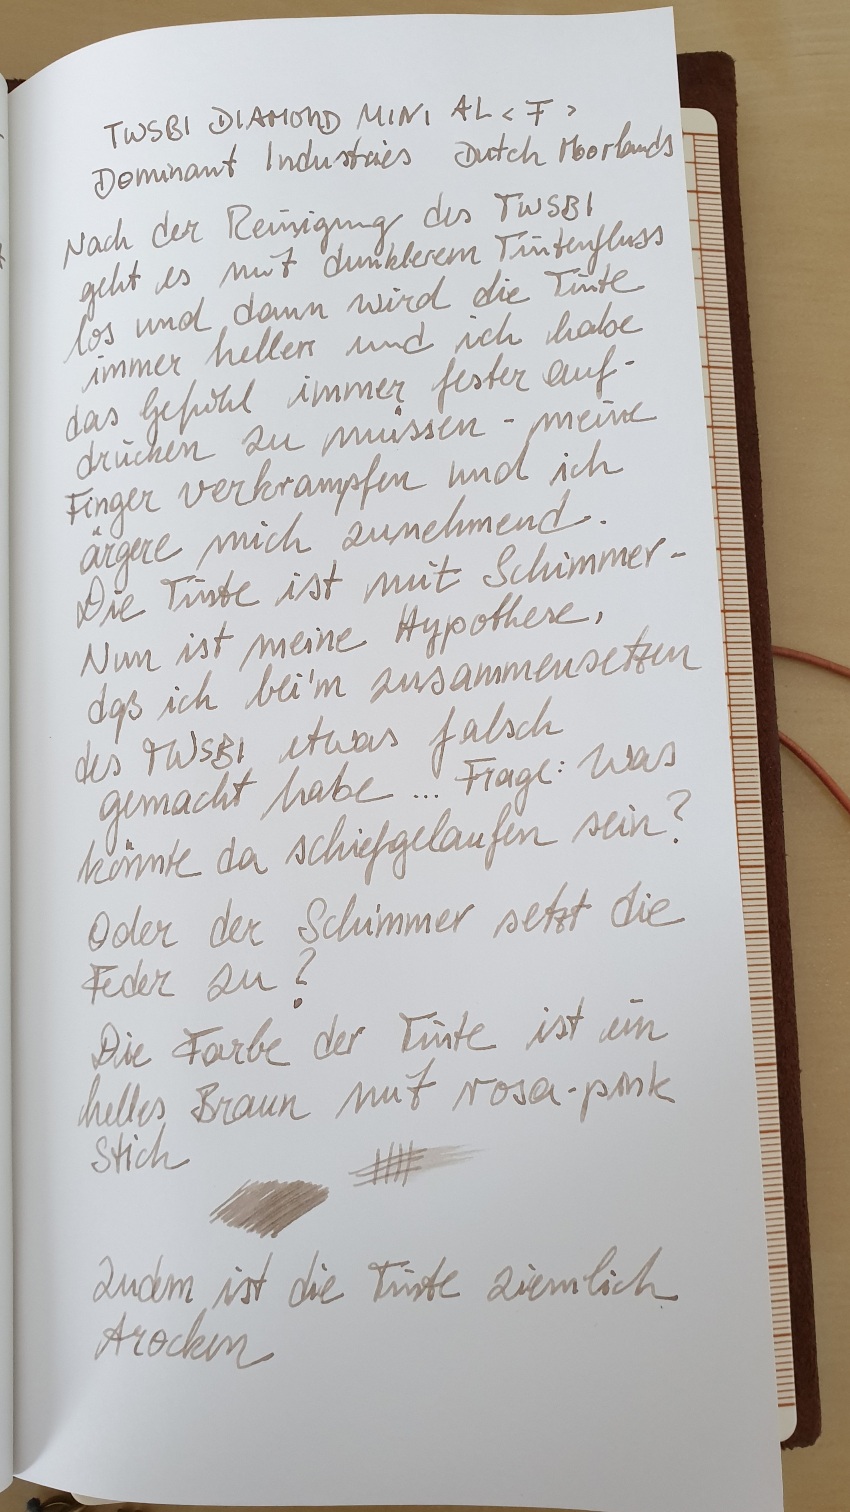 TWSBI DIAMOND MINI AL <F>
Dominant Industries Dutch Moorlands
Nach der Reinigung des TWSBI
geht es mit dunklerem Tintenfluss
los und dann wird die Tinte
immer heller und ich habe
das Gefühl immer fester auf-
drücken zu müssen - meine
Finger verkrampfen und ich
ärgere mich zunehmend.
Die Tinte ist mit Schimmer-
Nun ist meine Hypothese,
daß ich bei'm zusammensetzen
des TWSBI etwas falsch
gemacht habe ... Frage: Was
könnte da schiefgelaufen sein?
Oder der Schimmer setzt die
Feder zu?
Die Farbe der Tinte ist ein
helles Braun mit rosa-pink
Stich
Zudem ist die Tinte ziemlich
trocken